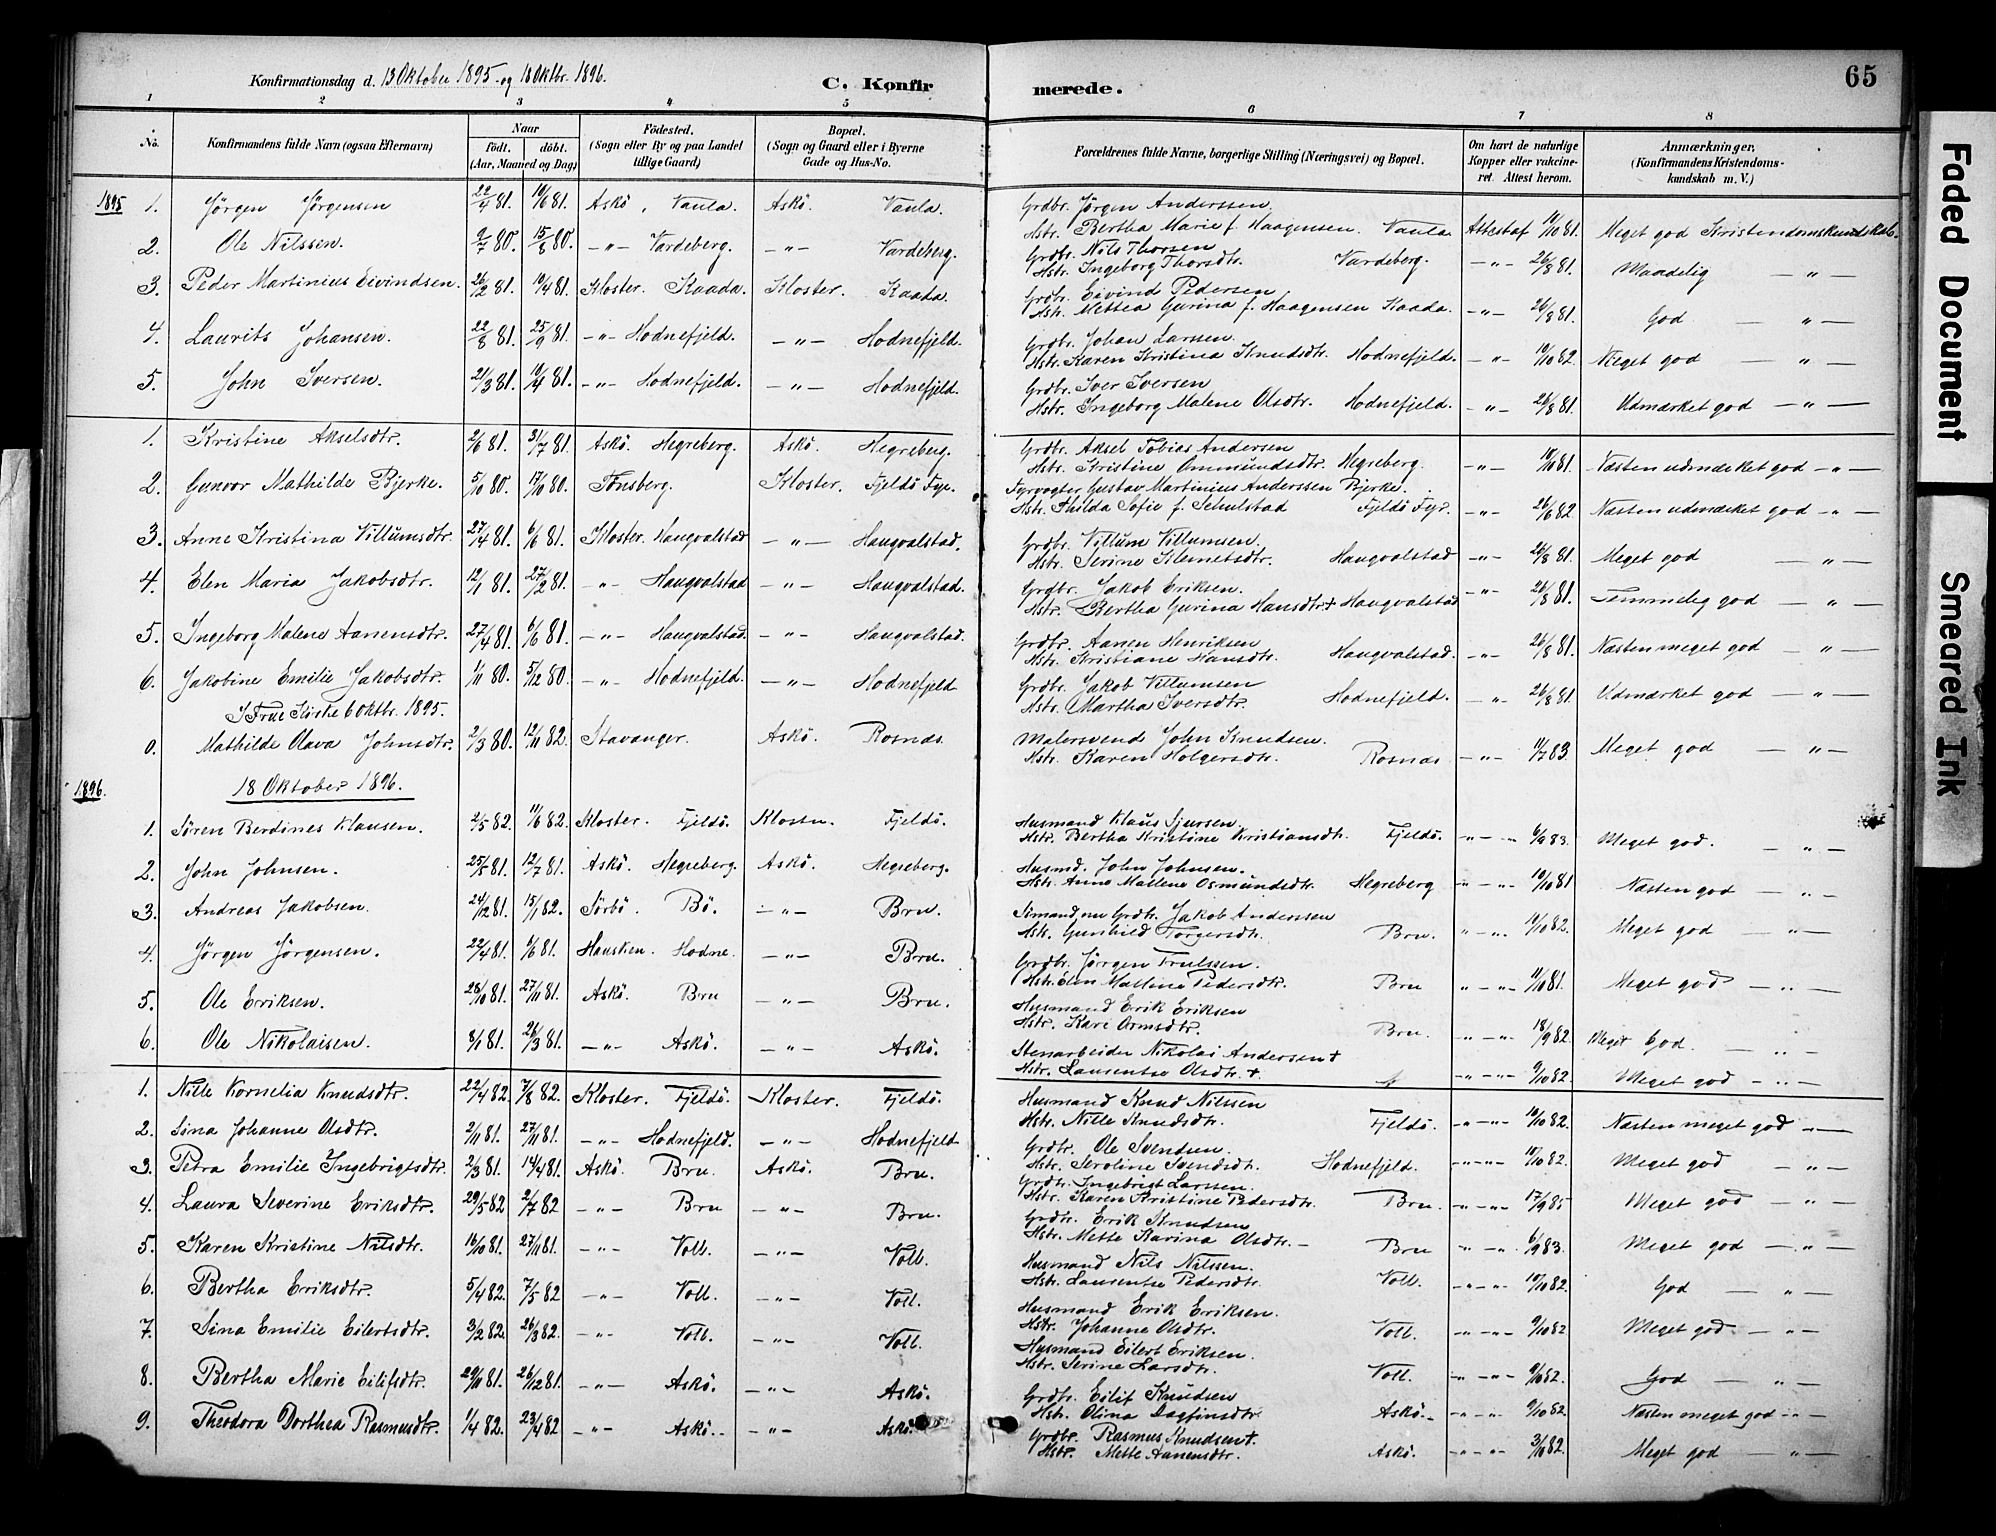 Konfirmationsdag d. 13 Oktober 1895 og 18 Oktbr. 1896.
C. Konfir
merede.
65
1 2 3 4 5 6 7 8
No. Konfirmandens fulde Navn (ogsaa Efternavn) Naar födt. döbt. (Aar, Maaned og Dag) Födested. (Sogn eller By og paa Landet tillige Gaard) Bopæl. (Sogn og Gaard eller i Byerne Gade og Hus-No. Forældrenes fulde Navne, borgerlige Stilling (Næringsvei) og Bopæl. Om havt de naturlige Kopper eller vakcineret. Attest herom. Anmærkninger. (Konfirmandens Kristendomskundskab m. V.)
1895 1. Jörgen Jörgensen 22/4 81. 19/6 81. Askö, Vaula. Askö. Vaula. Grdbr. Jörgen Anderssen
Hstr. Bertha Marie f. Haagensen. Vaula Attest af 11/10 81. Meget god Kristendomskundskab.
2. Ole Nilssen. 9/7 80. 15/8 80. -"- Vardeberg. -"- Vardeberg. Grdbr. Nils Thorsen
Hstr. Ingeborg Thorsdtr. Vardeberg. -"- 26/8 81. Maadelig -"-
3. Peder Martinius Eivindsen. 26/2 81. 10/4 81. Kloster. Kaada. Kloster. Kaada. Grdbr. Eivind Pedersen
Hstr. Mettea Gurina f. Haagensen Kaada. -"- 26/8 81. God -"-
4. Laurits Johansen. 22/8 81. 25/9 81. -"- Hodnefjeld. -"- Hodnefjeld. Grdbr. Johan Larssen
Hstr. Karen Kristina Knudsdtr. Hodnefjeld. -"- 10/10 82. Meget god -"-
5. John Iversen. 21/3 81. 10/4 81. -"- Hodnefjeld. -"- Hodnefjeld. Grdbr. Iver Iversen
Hstr. Ingeborg Malene Olsdtr. Hodnefjeld. -"- 26/8 81. Udmærket god -"-
1. Kristine Akselsdtr. 2/6 81. 31/7 81. Askö. Hegreberg. Askö. Hegreberg. Grdbr. Aksel Tobias Andersen
Hstr. Kristine Ommundsdtr. Hegreberg. -"- 10/10 81. Næsten udmærket god -"-
2. Gunvor Mathilde Bjerke. 5/10 80. 17/10 80. Tönsberg. Kloster. Fjeldö Fyr. Fyrvogter Gustav Martinius Anderssen Bjerke.
Hstr. Thilda Sofie f. Schulstad Fjeldö Fyr. -"- 26/6 82 Næsten udmærket god -"-
3. Anne Kristina Villumsdtr. 27/4 81. 6/6 81. Kloster. Haugvalstad -"- Haugvalstad. Grdbr. Villum Villumsen.
Hstr. Serine Klemetsdtr. Haugvalstad -"- 26/8 81. Meget god -"-
4. Elen Maria Jakobsdtr. 12/1 81. 27/2 81. -"- Haugvalstad -"- Haugvalstad. Grdbr. Jakob Eriksen.
Hstr. Bertha Gurina Hansdtr + Haugvalstad -"- 26/8 81. Temmelig god -"-
5. Ingeborg Malene Aanensdtr. 27/4 81. 6/6 81. -"- Haugvalstad. -"- Haugvalstad. Grdbr. Aanen Henriksen
Hstr. Kristiane Hansdtr. Haugvalstad. -"- 26/8 81. Næsten meget god -"-
6. Jakobine Emilie Jakobsdtr. 1/11 80. 5/12 80. -"- Hodnefjeld. -"- Hodnefjeld Grdbr. Jakob Villumsen
Hstr. Martha Iversdtr. Hodnefjeld. -"- 26/8 81. Udmærket god -"-
I Frue Kirke 6 Oktbr. 1895.
0. Mathilde Olava Johnsdtr. 2/3 80. 12/11 82. Stavanger. Askö. Rosnæs. Malersvend John Knudsen.
Hstr. Karen Holgersdtr. Rosnæs -"- 11/7 83. Meget god -"-
1896. 18 Oktober 1896.
1. Sören Berdines Klausen. 2/5 82. 11/6 82. Kloster. Fjeldö. Kloster. Fjeldö. Husmand Klaus Sjursen
Hstr. Bertha Kristine Kristiansdtr. Fjeldö. -"- 6/9 83. Meget god. -"-
2. John Johnsen. 25/5 81. 12/7 81. Askö. Hegreberg. Askö. Hegreberg. Husmd. John Johnsen.
Hstr. Anne Mallene Osmundsdtr. Hegreberg -"- 10/10 81 Næsten god -"-
3. Andreas Jakobsen. 24/12 81. 15/1 82. Sörbö. Bö. -"- Bru. Grdbr. Jakob Anderssen
Hstr. Gunhild Torgersdtr. Bru. -"- 10/10 82. Meget god -"-
4. Jörgen Jörgensen. 22/4 81. 6/6 81. Hausken. Hodne. -"- Bru. Grdbr. Jörgen Truelssen.
Hstr. Elen Malline Pedersdtr. Bru -"- 11/10 81. Meget god -"-
5. Ole Eriksen. 26/10 81. 27/11 81. Askö. Bru -"- Bru. Husmand Erik Eriksen
Hstr. Kari Ormsdtr. Bru. -"- 18/9 82. Meget God. -"-
6. Ole Nikolaisen. 8/1 81. 26/3 81. -"- Askö. -"- Askö. Stenarbeider Nikolai Andersen +
Hstr. Laurentse Olsdtr. +. -"- 9/10 82. Meget god -"-
1. Nille Kornelia Knudsdtr. 22/4 82. 7/8 82. Kloster. Fjeldö. Kloster. Fjeldö. Husmand Knud Nilssen
Hstr. Nille Knudsdtr. Fjeldö. -"- 10/10 82. Næsten meget god -"-
2. Sina Johanne Olsdtr. 2/11 81. 27/11 81. -"- Hodnefjeld. -"- Hodnefjeld Grdbr. Ole Svendsen.
Hstr. Seroline Svendsdtr. Hodnefjeld. -"- 10/10 82. Meget god -"-
3. Petra Emilie Ingebrigtsdtr. 2/3 81. 14/4 81. Askö. Bru. Askö. Bru. Grdbr. Ingebrigt Larssen.
Hstr. Karen Kristine Pedersdtr. Bru. -"- 17/9 85. Meget god -"-
4. Laura Severine Eriksdtr. 29/5 82 2/7 82 -"- Bru -"- Bru. Grdbr. Erik Knudsen
Hstr. Mette Karina Olsdtr. Bru -"- 6/9 83. Meget god -"-
5. Karen Kristine Nilsdtr. 16/10 81. 27/11 81. -"- Voll. -"- Voll. Husmand Nils Nilssen.
Hstr. Laurentse Pedersdtr. Voll. -"- 10/10 82. God -"-
6. Bertha Eriksdtr. 5/4 82. 7/5 82 -"- Voll. -"- Voll. Husmand Erik Eriksen.
Hstr. Johanne Olsdtr. Voll. -"- 9/10 82 Meget god -"-
7. Sina Emilie Eilertsdtr. 3/2 82. 26/3 82. -"- Voll. -"- Voll. Husmand Eilert Eriksen.
Hstr. Serine Larsdtr. Voll. -"- 9/10 82. God -"-
8. Bertha Marie Eilifsdtr. 29/10 81. 26/12 81. -"- Askö. -"- Askö. Grdbr. Eilif Knudsen
Hstr. Olina Dagfinsdtr. Askö. -"- 9/10 82. Næsten meget god -"-
9. Theodora Dorthea Rasmusdtr. 1/4 82. 23/4 82 -"- Askö. -"- Askö. Grdbr. Rasmus Knudsen +.
Hstr. Mette Aanensdtr. Askö. -"- 3/10 82. Meget god -"-
Faded Document
Smeared Ink